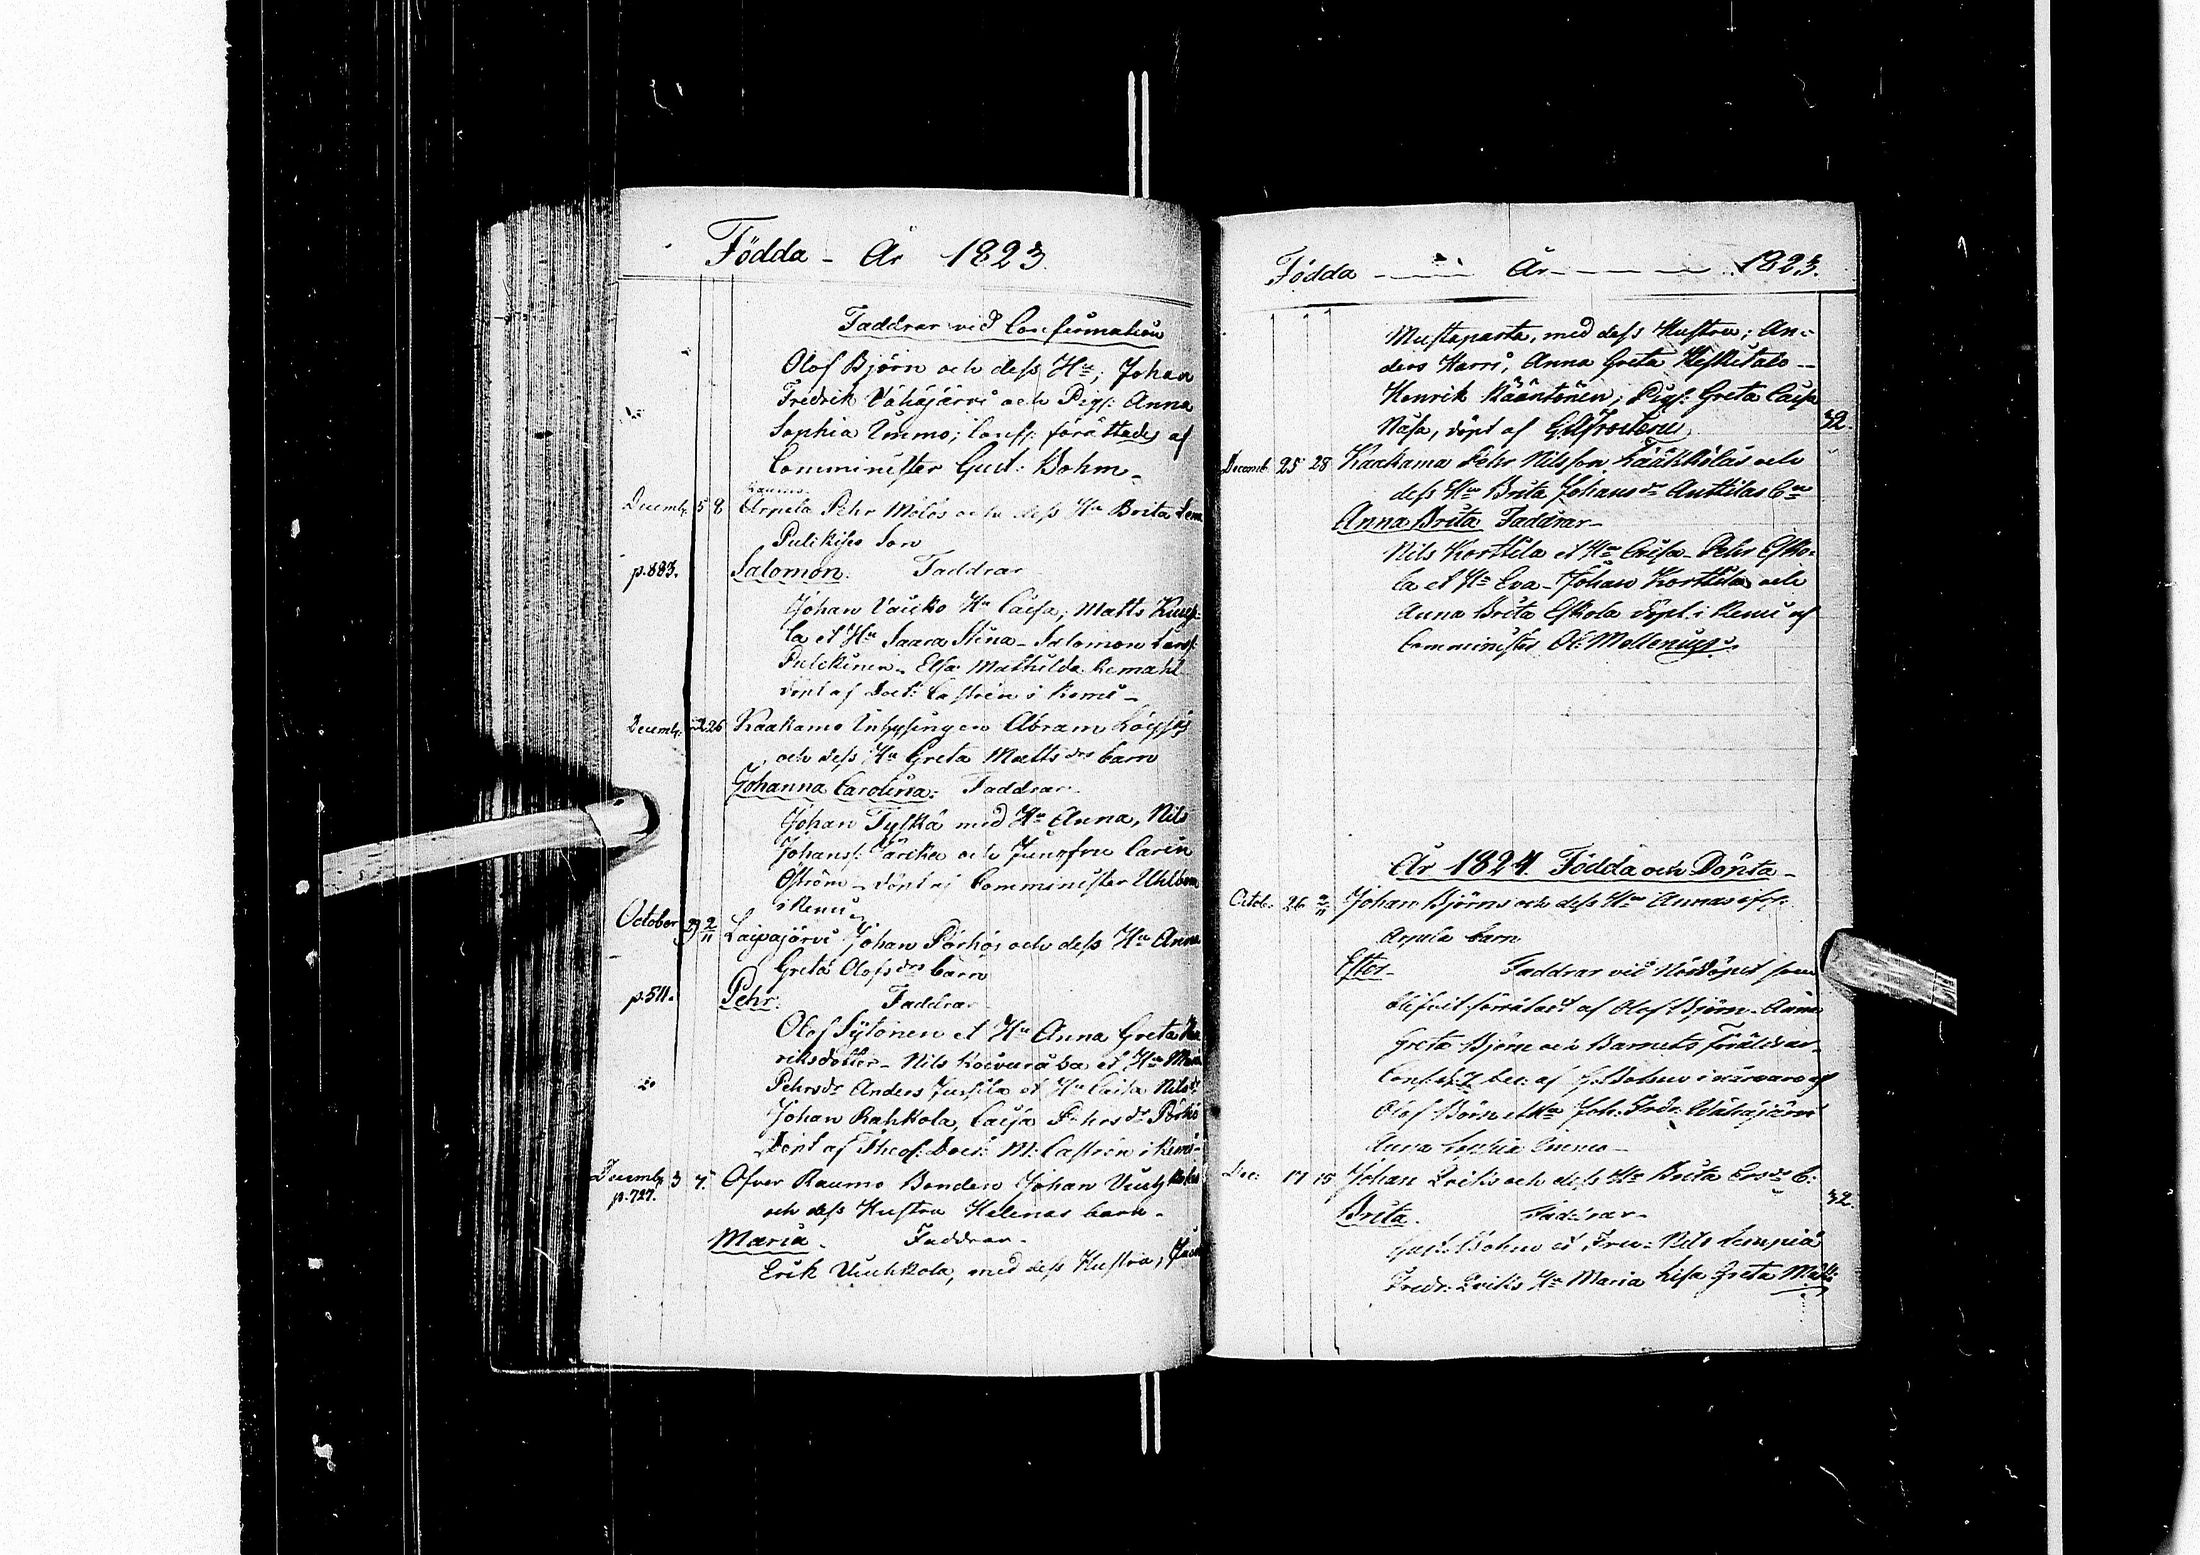 Födda - År 1823.
Faddrar vid Confirmation
Olof Björn och dess Hu; Johan
Fredrik Vähäjärvi och Pig: Anna
Sophia Immo; Conf: förättades af
Comminister Gust: Bohm -
Raumo
Decemb. 5 8 Arpela Pehr Mölös och dess Hu Brita
Pulikises Son
p.883. Salomon. Faddrar
Johan Vaucko Hu Caisa; Matts
la et Hu Saara Stina - Salomon
Pulkinen - Elsa Mathilda
döpt af Doct: Castrén i Kemi -
Decemb. 26 Kaakamo Inhysingen Abram
och dess Hu Greta Mattsdrs barn
Johanna Carolina: Faddrar -
Johan Tyskä med Hu Anna, Nils
Johans: och Jungfru Carin
Öström - döpt af Comminister
i Kemi
October 29 2/11 Laipajärvi Johan Pörhös och dess Hu Anna
Greta Olofsdrs barn
p.511. Pehr. Faddrar
Olof Sytönen et Hu Anna Greta
riksdotter - Nils Koivuraava et Hu
Pehrsdr Anders Jussila et Hu Caisa Nilsdr
Johan Rahkola, Caisa Pehrsdr Pörhö
Döpt af Theol: Doct: M: Castrén i Kemi -
Decemb. 3 7. Öfver Raumo Bonden Johan
p.727. och dess Hustru Helenas barn -
Maria - Faddrar -
Erik Uuchkola, med dess Hustru,
Födda - År - 1823.
Mustaparta, med dess Hustru; An-
ders Harri, Anna Greta Keskitalo -
Henrik Kääntönen; Pig: Greta Caisa
Näsa, döpt af 32.
Decemb. 25 28 Kaakama Pehr Nilsson och
dess Hu Brita Johansdr Anttilas
Anna Brita Faddrar -
Nils Korttila et Hu Caisa - Pehr Esko-
la et Hu Eva - Johan Korttila och
Anna Brita Eskola döpt i Kemi af
Comminister Ol: Mellenius.
År 1824. Födda och Döpta -
Octob. 26 2/11 Johan Björns och dess Hu Annas
Arpela barn
Ester - Faddrar vid Nöddopet som
blifvit förrättadt af Olof Björn - Anna
Greta Björn och Barnets Föräldrar -
Conf: af G: Bohm i närvaro af
Olof Björn et Hu Joh: Fredr: Wähäjärvi
Anna Sophia Immo -
Dec: 15 Johan och dess Hu Brita
Brita. Faddrar - 32.
Gust: Bohm et Fru - Nils Lempiä
Fredr: Hu Maria Lisa Greta